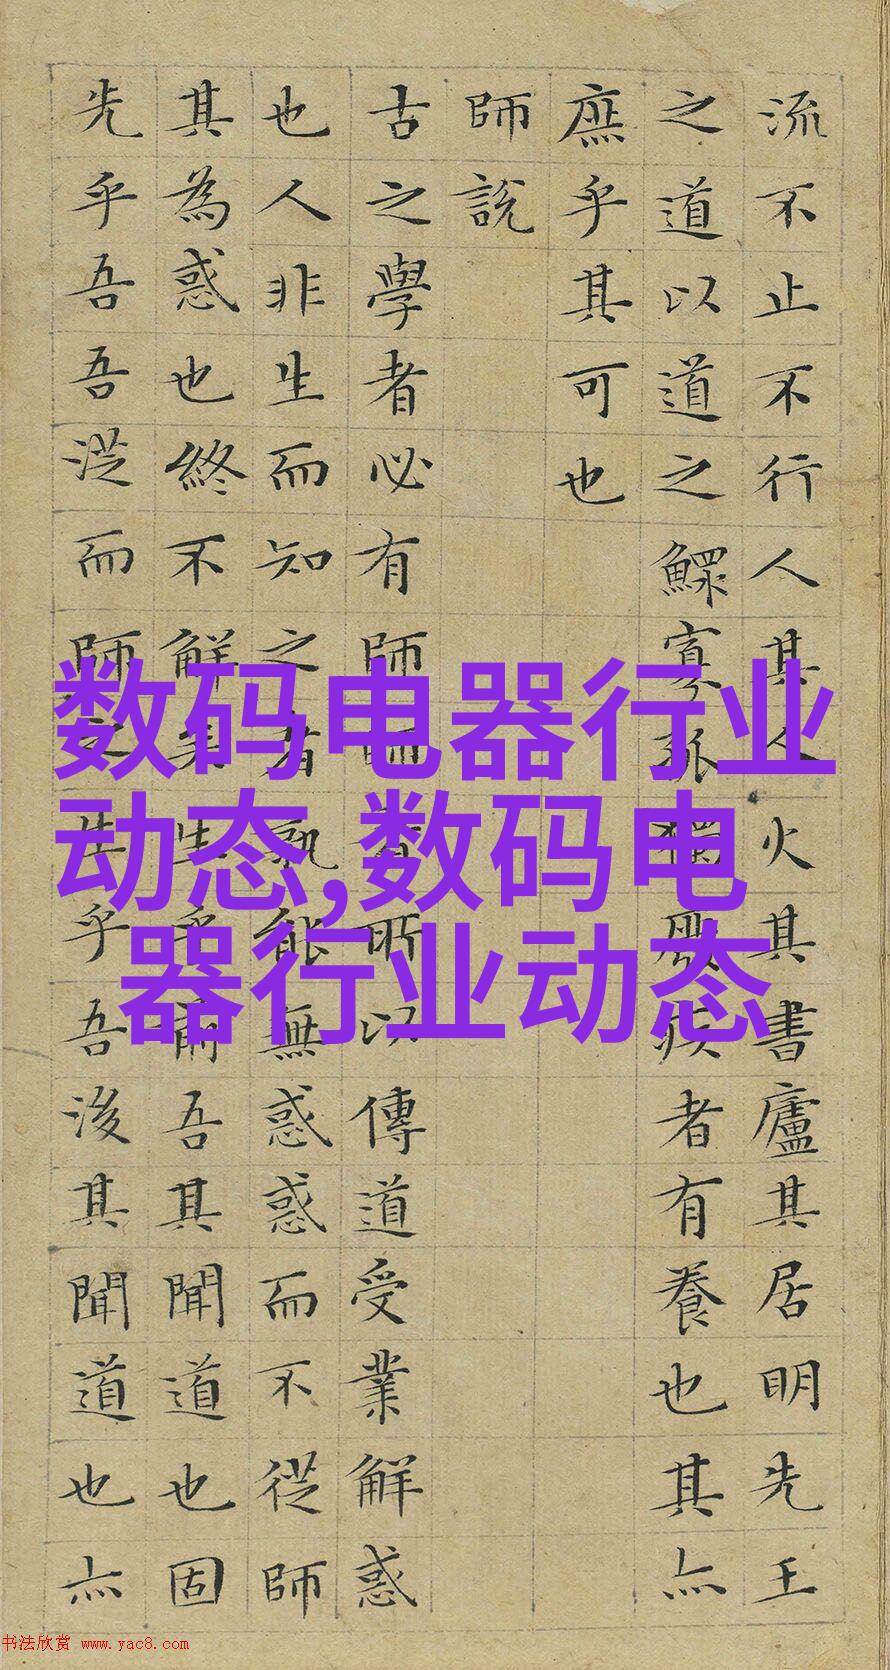 流不止不行人其人火其書廬其居明先王
之道以道之鰥寡孤獨廢疾者有養也其亦
庶乎其可也
師說
古之學者必有師師者所以傳道受業解惑
也人非生而知之者孰能無惑惑而不從師
其為惑也終不解矣生乎前吾其聞道也固
先乎吾吾從而師之生乎吾後其聞道也亦
数码电器行业
动态,数码电
器行业动态
书法欣赏 www.yac8.com